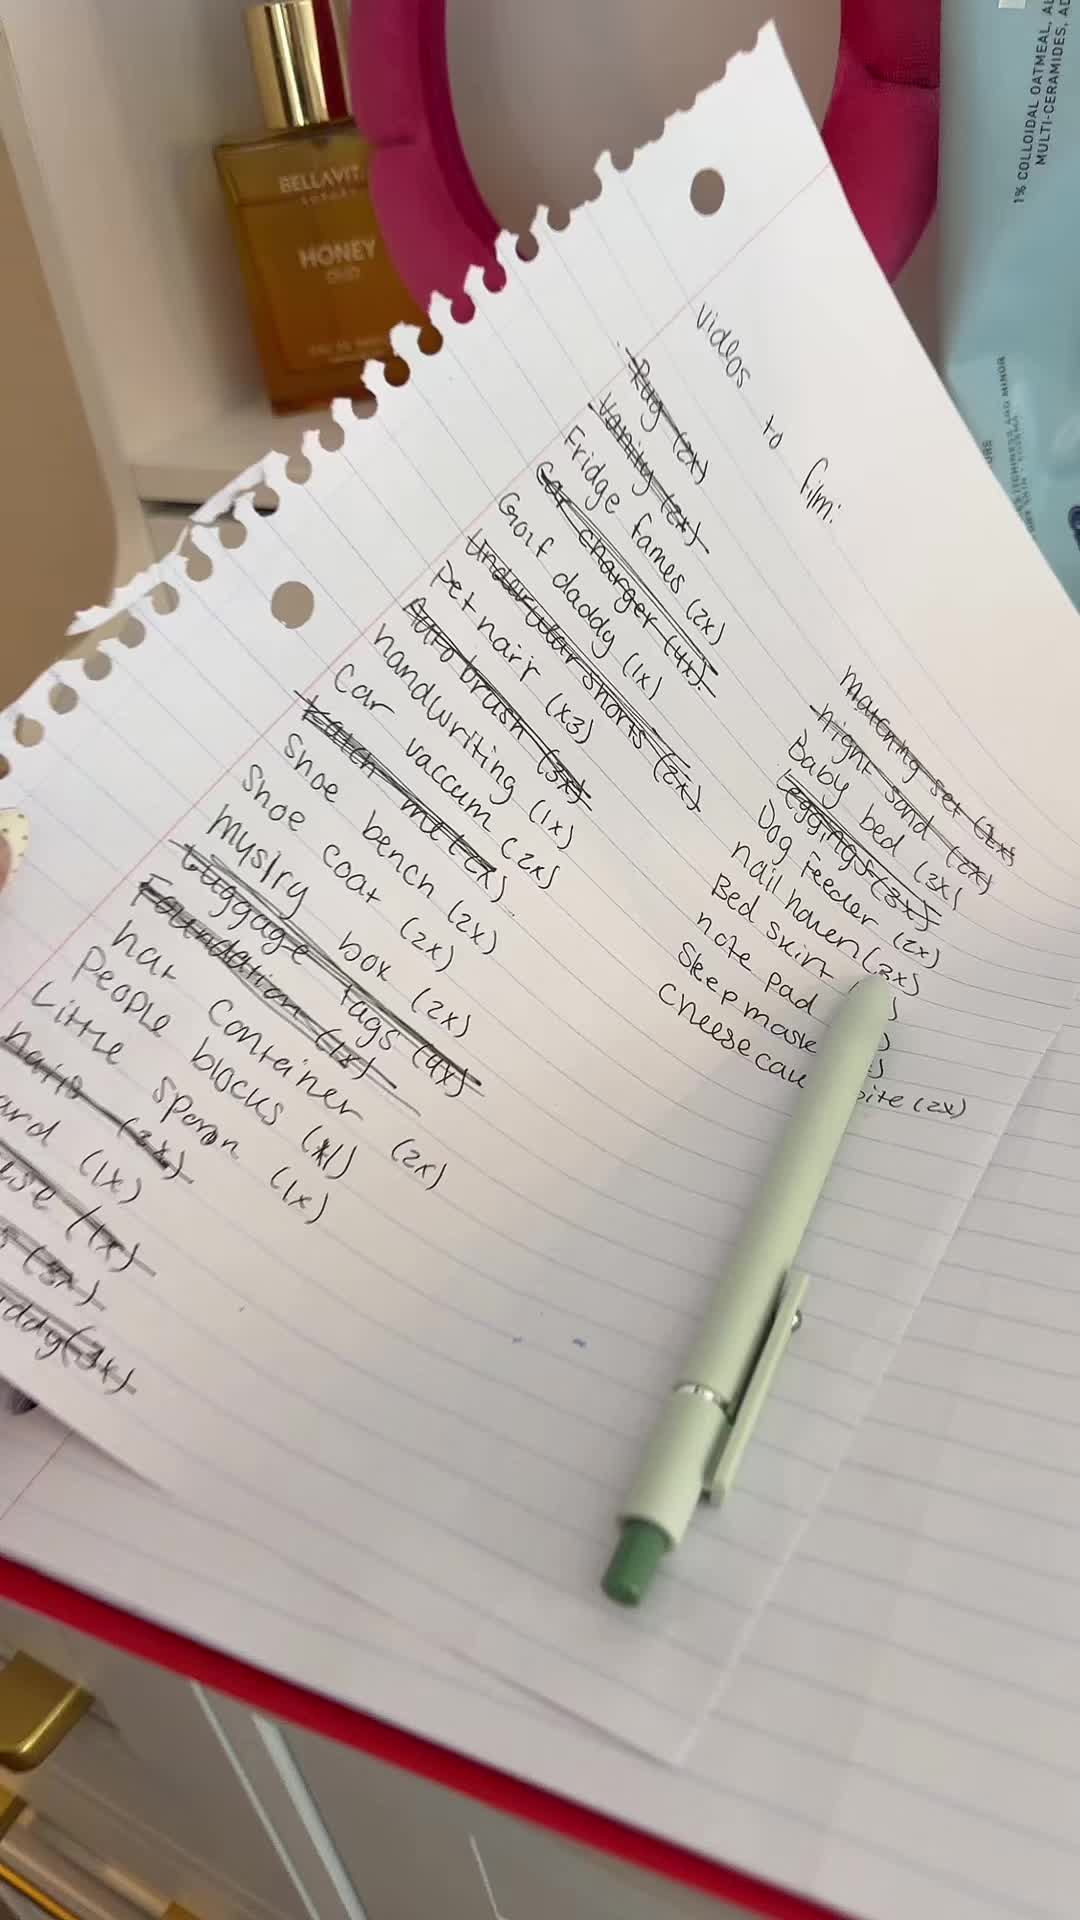 BELLAVIT
LUXURY
HONEY
OUD
1% COLLOIDAL OATMEAL, AL
MULTI-CERAMIDES, AD
ITCHINESS AND MINOR
videos to film:
Rug (2x)
Vanity (2x)
Fridge fames (2x)
Car charger (4x)
Golf daddy (1x)
Underwear shorts (2x)
pet hair (x3)
Auto brush (3x)
handwriting (1x)
Car vaccum (2x)
shoe bench (2x)
Shoe coat (2x)
mystry box (2x)
Luggage tags (4x)
Foundation (1x)
hat container (2x)
People blocks (x1)
Little spoon (1x)
ard (1x)
(3x)
ddy (3x)
matching set (2x)
night sand (2x)
Baby bed (3x)
Leggings (3x)
Dog Feeder (2x)
nail haven (3x)
Bed skirt
note pad
Sleep mask
cheesecau bite (2x)